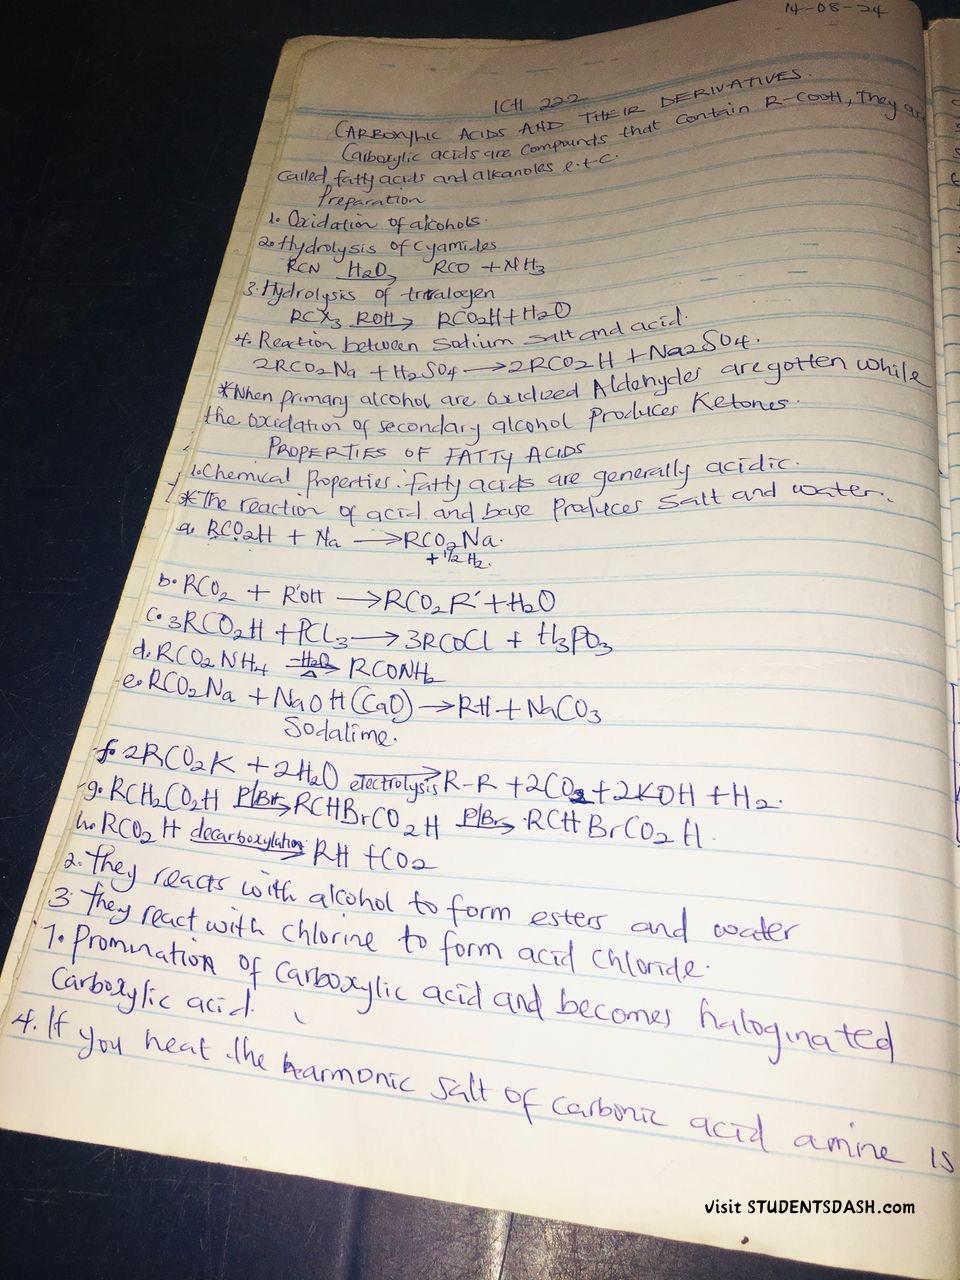 14-08-24
ICH 222
CARBOXYLIC ACIDS AND THEIR DERIVATIVES.
Carboxylic acids are compounds that contain R-COOH, They are
called fatty acids and alkanoles e.t.c.
Preparation
1. Oxidation of alcohols.
2. Hydrolysis of Cyamides
RCN H2O→ RCO + NH3
3. Hydrolysis of
RCX3 ROH→ RCO2H + H2O
4. Reaction between Sodium Salt and acid.
2RCO2Na + H2SO4 → 2RCO2H + Na2SO4.
*When primary alcohol are oxidized Aldehydes are gotten while
the oxidation of secondary alcohol produces Ketones.
PROPERTIES OF FATTY ACIDS
1. Chemical Properties: fatty acids are generally acidic.
*The reaction of acid and base Produces Salt and water.
a. RCO2H + Na → RCO2Na.
+ 1/2 H2.
b. RCO2 + R'OH → RCO2R' + H2O
c. 3RCO2H + PCL3 → 3RCOCl + H3PO3
d. RCO2NH4 -H2O→ Δ RCONH2
e. RCO2Na + NaOH (CaO) → RH + NaCO3
Sodalime.
f. 2RCO2K + 2H2O electrolysis→ R-R + 2CO2 + 2KOH + H2.
g. RCH2CO2H P/Br→ RCHBrCO2H P/Br→ RCHBrCO2H.
h. RCO2H decarboxylation→ RH + CO2
2. They reacts with alcohol to form esters and water
3. They react with chlorine to form acid chloride.
7. Promination of carboxylic acid and becomes haloginated
Carboxylic acid.
4. If you heat the harmonic salt of carbonic acid amine is
visit STUDENTSDASH.com